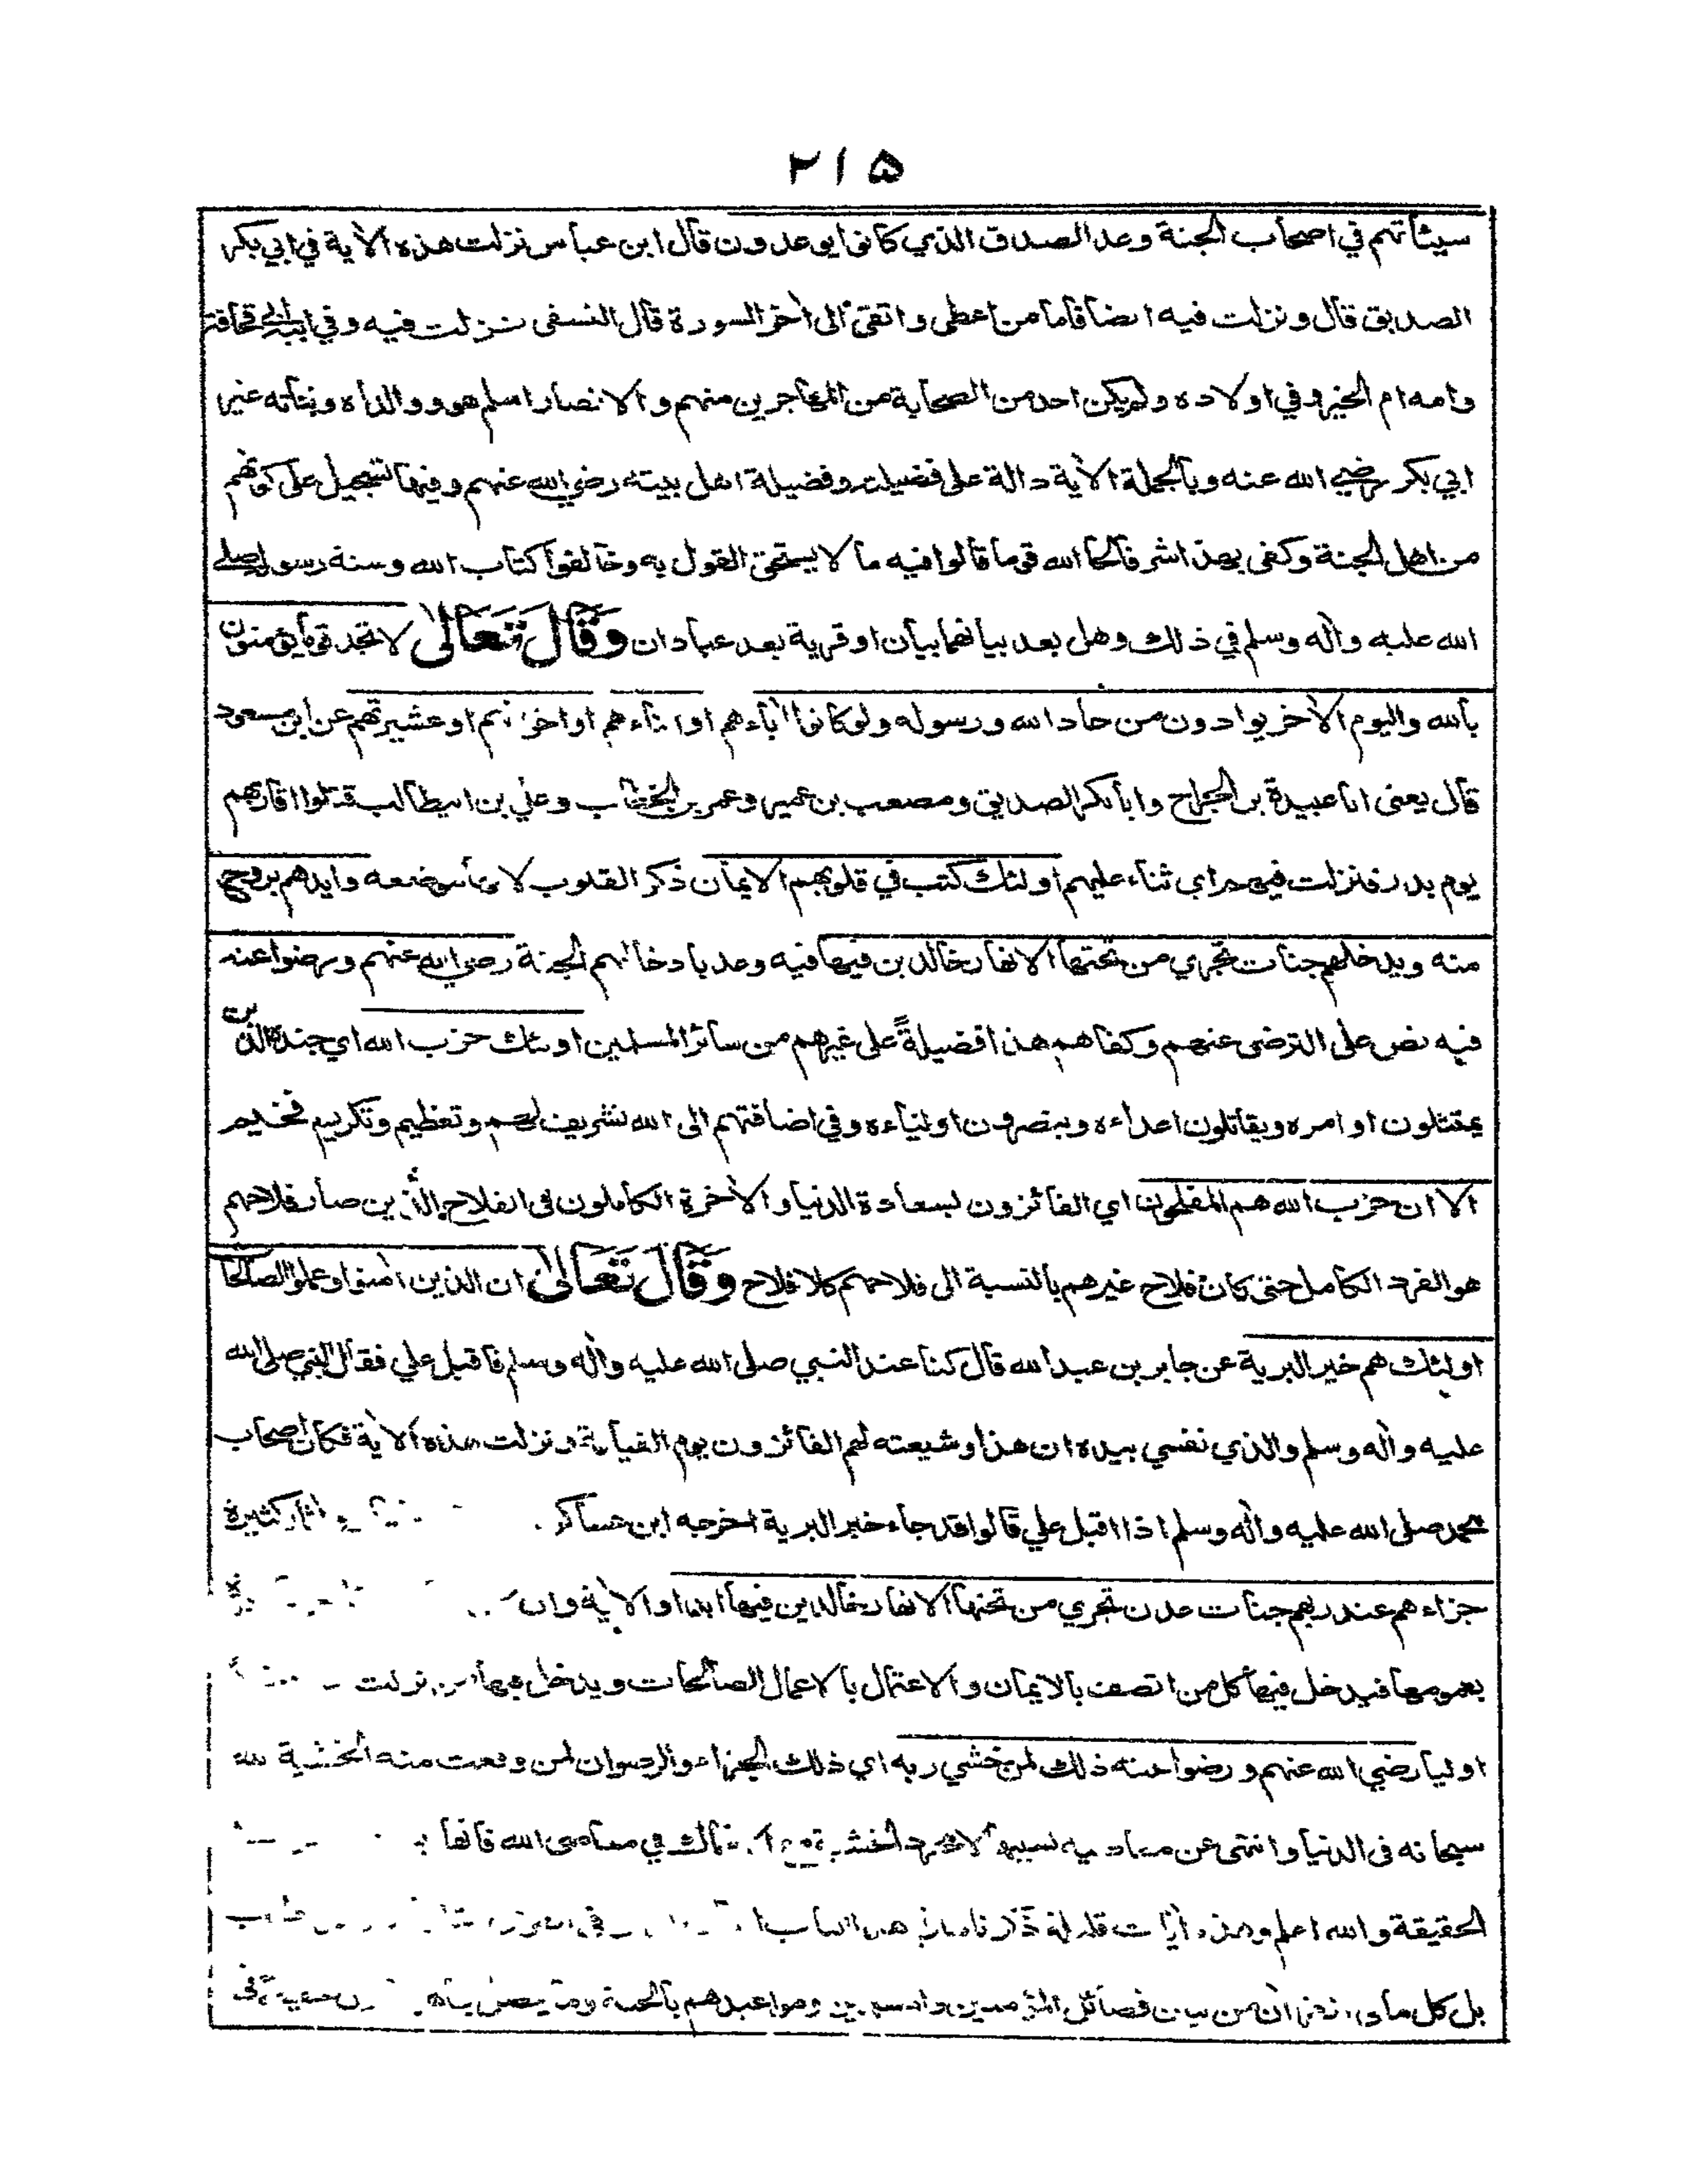 ٢١٥
سيئاتهم في اصحاب الجنة وعد الصدق الذي كانوا يوعدون قال ابن عباس نزلت هذه الاٰية في ابي بكر
الصديق قال ونزلت فيه ايضا فاما من اعطى واتقى الى اٰخر السورة قال النسفى نزلت فيه وفي ابيه ابي قحافة
وامه ام الخير وفي اولاده ولم يكن احد من الصحابة من المهاجرين منهم والانصار اسلم هو ووالداه وبناته غير
ابي بكر رضي الله عنه وبالجملة الاٰية دالة على فضيلته وفضيلة اهل بيته رضي الله عنهم وفيها تسجيل على كونهم
من اهل الجنة وكفى بهذا شرفا لحا الله قوما قالوا فيه ما لا يستحق القول به وخالفوا كتاب الله وسنة رسوله صلى
الله عليه واٰله وسلم في ذلك وهل بعد بيانهما بيان او قرية بعد عبادان وَقَالَ تَعَالىٰ لا تجد قوما يؤمنون
بالله واليوم الاٰخر يوادون من حاد الله ورسوله ولو كانوا اٰباءهم او ابناءهم او اخوانهم او عشيرتهم عن ابن مسعود
قال يعنى ابا عبيدة بن الجراح وابا بكر الصديق ومصعب بن عمير وعمر بن الخطاب وعلي بن ابيطالب قتلوا اقاربهم
يوم بدر فنزلت فيهم اي ثناء عليهم اولئك كتب في قلوبهم الايمان ذكر القلوب لانها موضعه وايدهم بروح
منه ويدخلهم جنات تجري من تحتها الانهار خالدين فيها فيه وعد بادخالهم الجنة رضي الله عنهم ورضوا عنه
فيه نص على الترضى عنهم وكفاهم هذا فضيلةً على غيرهم من سائر المسلمين اولئك حزب الله اي جنده الذين
يمتثلون اوامره ويقاتلون اعداءه وينصرون اولياءه وفي اضافتهم الى الله تشريف لهم وتعظيم وتكريم فخيم
الا ان حزب الله هم المفلحون اي الفائزون لسعادة الدنيا والاٰخرة الكاملون فى الفلاح الذين صار فلاحهم
هو الفرد الكامل حتى كان فلاح غيرهم بالنسبة الى فلاحهم كلا فلاح وَقَالَ تَعَالىٰ ان الذين اٰمنوا وعملوا الصالحات
اولئك هم خير البرية عن جابر بن عبد الله قال كنا عند النبي صلى الله عليه واٰله وسلم فاقبل علي فقال النبي صلى الله
عليه واٰله وسلم والذي نفسي بيده ان هذا وشيعته لهم الفائزون يوم القيامة ونزلت هذه الاٰية فكان اصحاب
محمد صلى الله عليه واٰله وسلم اذا اقبل علي قالوا قد جاء خير البرية اخرجه ابن عساكر اٰثار كثيرة
جزاءهم عند ربهم جنات عدن تجري من تحتها الانهار خالدين فيها ابدا والاٰية وان
بعمومها فيدخل فيها كل من اتصف بالايمان والاعتمال بالاعمال الصالحات ويدخل فيها من نزلت
اوليا رضي الله عنهم ورضوا عنه ذلك لمن خشي ربه اي ذلك الجزاء والرضوان لمن وقعت منه الخشية لله
سبحانه فى الدنيا وانتهى عن معاصيه بسببها لا مجرد الخشية مع الانهماك في معاصى الله فانها
الحقيقة والله اعلم وهذه اٰيات قليلة ذكرناها في هذا الباب
بل كل ما في القراٰن من بيان فضائل المؤمنين والمسلمين ومواعيدهم بالجنة وما يتصل